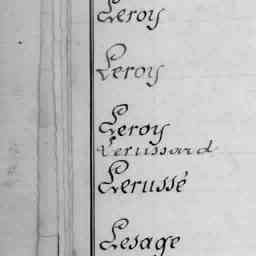 Leroy
Leroy
Leroy
Lerussard
Lerussé
Lesage